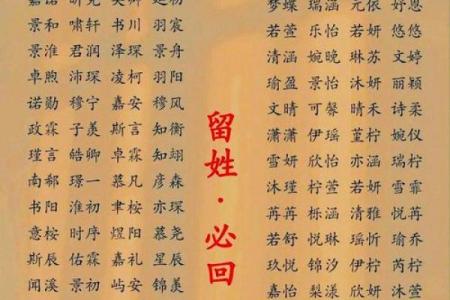 景和 啸轩 书川 羽宸
景淮 君润 泽琛 景舟
卓煦 沛琛 凌柯 羽阳
诺勋 穆宁 嘉安 穆风
政霖 子羡 斯言 知衡
瑾言 皓卿 卓霖 知翊
南郗 璟一 慕凡 彦森
书阳 淮初 聿桉 亦琛
意桉 时序 煜阳 慕尧
斯辰 佑霖 嘉礼 星辰
闻溪 景初 屿安 锦羡
留姓·必回
梦蝶 瑞涵 元依
若萱 乐怡 若妍 悠悠
清涵 婉晚 琳苏 文婷
瑜盈 景怡 沐妍 丽颖
文晴 可馨 晴禾 诗柔
潇潇 伊瑶 堇柠 婉仪
雪妍 欣怡 亦涵 瑞柠
沐瑾 柠萱 若妍 雪霏
苒苒 栎涵 清雅 悦苒
若舒 悦琳 瑶忻 瑜乔
玖悦 锦汐 伊桐 芮柠
沐萱